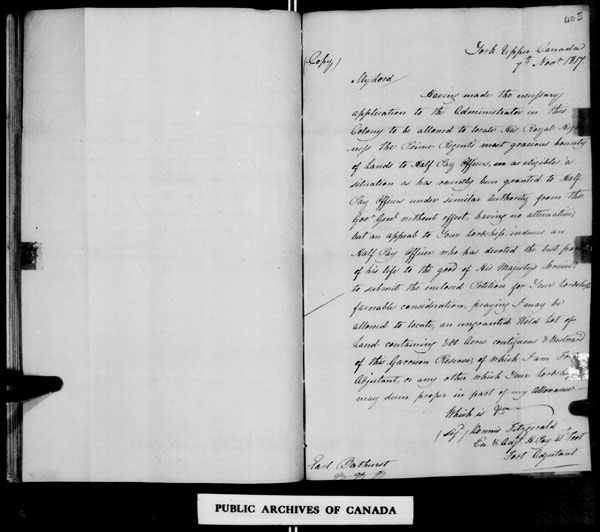 York Upper Canada
7th Novr 1817
(Copy)
My Lord
Having made the necessary
application to the Administrator in this
Colony to be allowed to locate His Royal High
ness the Prince Regent's most gracious bounty
of Lands to Half Pay Officers, in as eligible a
situation as has recently been granted to Half
Pay Officers under similar Authority from the
Govr Genl without effect, having no alternative
but an appeal to Your Lordship, induces an
Half Pay Officer who has devoted the best part
of his life to the good of His Majesty's Service
to submit the inclosed Petition for Your Lordship's
favorable consideration, praying I may be
allowed to locate, an ungranted Wild Lot of
Land containing 200 Acres contiguous & Westward
of this Garrison Reserve, of which I am Fort
Adjutant, or any other which Your Lordship
may deem proper in part of my Allowance
Which is &c
(Sig) Dennis Fitzgerald
En. & Adjt. H. Pay 41st Foot
Fort Adjutant
Earl Bathurst
PUBLIC ARCHIVES OF CANADA